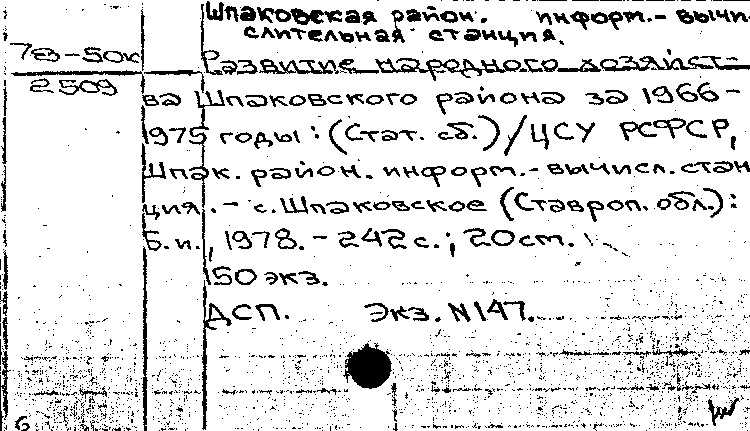 Шпаковская район. информ.-вычи-
слительная станция.
78-50к
2509
Развитие народного хозяйст-
ва Шпаковского района за 1966-
1975 годы: (Стат. сб.)/ЦСУ РСФСР,
Шпак. район. информ.-вычисл. стан
ция. - с. Шпаковское (Ставроп. обл.):
Б.и., 1978. - 242 с.; 20 см.
150 экз.
ДСП. Экз. N147.
6